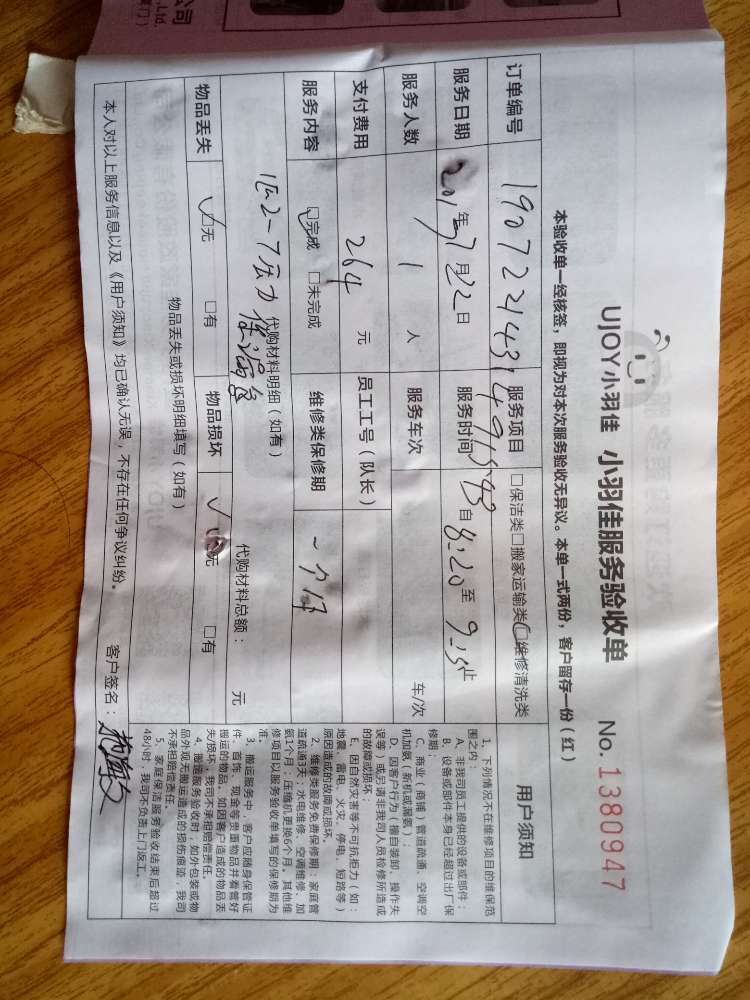 UJOY小羽佳 小羽佳服务验收单 No. 1380947
本验收单一经核签，即视为对本次服务验收无异议。本单一式两份，客户留存一份（红）
订单编号 服务项目 □保洁类□搬家运输类□维修清洗类
服务日期 2019年7月22日 服务时间 自8:20至9:15止
服务人数 1 人 服务车次 车/次
支付费用 264 元 员工工号（队长）
服务内容 □完成 □未完成 维修类保修期 一个月
代购材料明细（如有） 代购材料总额： 元
物品丢失 □无 □有 物品损坏 □无 □有
物品丢失或损坏明细填写（如有）
本人对以上服务信息以及《用户须知》均已确认无误，不存在任何争议纠纷。 客户签名：
用户须知
1、下列情况不在维修项目的维保范
围之内：
A、非我司员工提供的设备或部件；
B、设备或部件本身已经超过出厂保
修期；
C、商业（商铺）管道疏通、空调空
机加氨（新机或漏氨）；
D、因客户行为（擅自装卸、操作失
误等）或另请非我司人员检修所造成
的故障或损坏；
E、因自然灾害等不可抗拒力（如：
地震、雷电、火灾、停电、短路等）
原因造成的故障或损坏。
2、维修类服务免费保修期：家庭管
道疏通3天；水电维修、空调维修、加
氨1个月；压缩机更换6个月。其他维
修项目以服务验收单填写的保修期为
准。
3、搬运服务中，客户应随身保管证
件、首饰、现金等贵重物品并看管好
搬运的物品。如因客户造成的物品丢
失/损坏，我司不承担赔偿责任。
4、搬运服务验收时，如外包装或物
品外观无搬运造成的损伤痕迹，我司
不承担赔偿责任。
5、家庭保洁服务验收结束后超过
48小时，我司不负责上门返工。
公司
., Ltd.